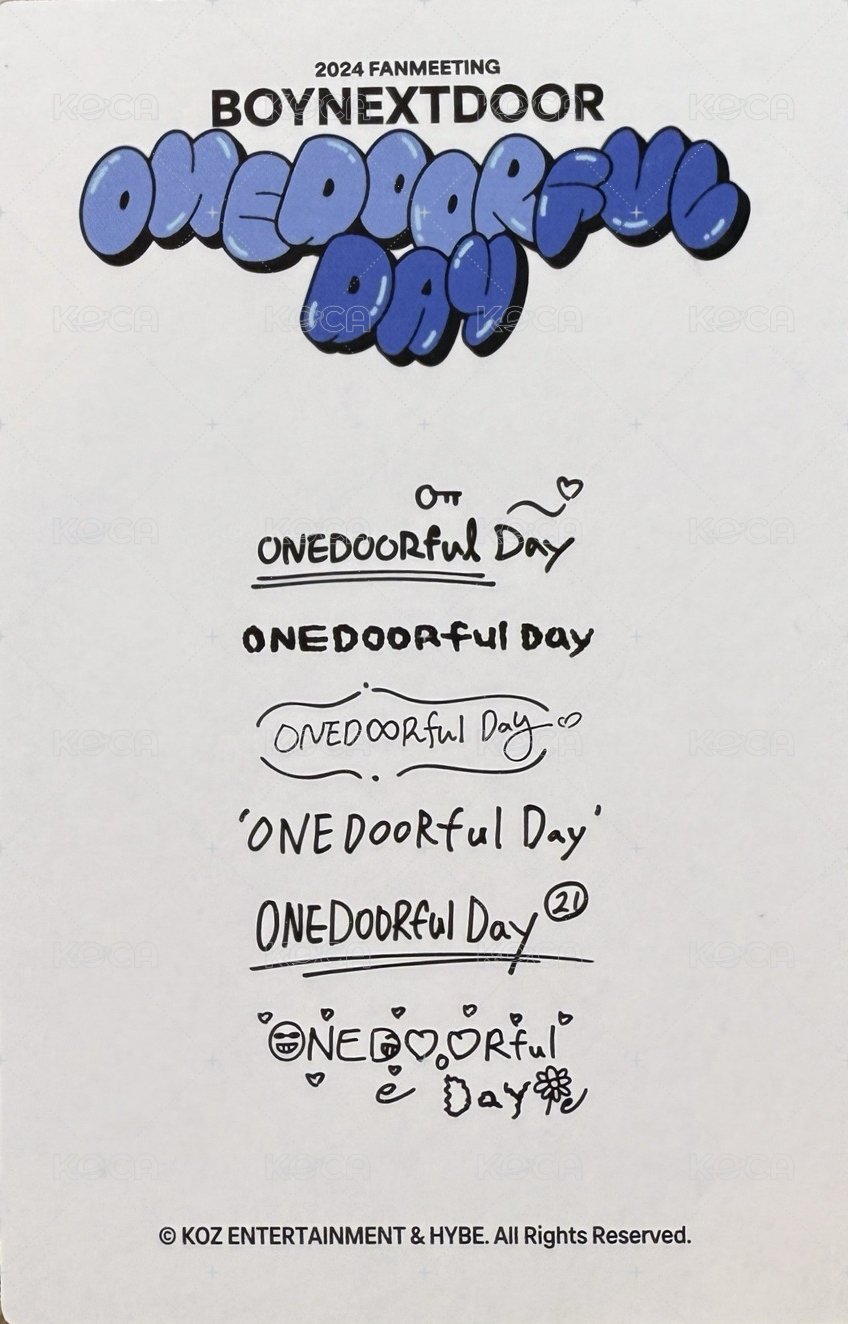 2024 FANMEETING
BOYNEXTDOOR
ONEDOORFUL
DAY
ONEDOORful Day
ONEDOORful Day
ONEDOORful Day
'ONEDOORful Day'
ONEDOORful Day 21
ONEDOORful
Day
© KOZ ENTERTAINMENT & HYBE. All Rights Reserved.
KOCA